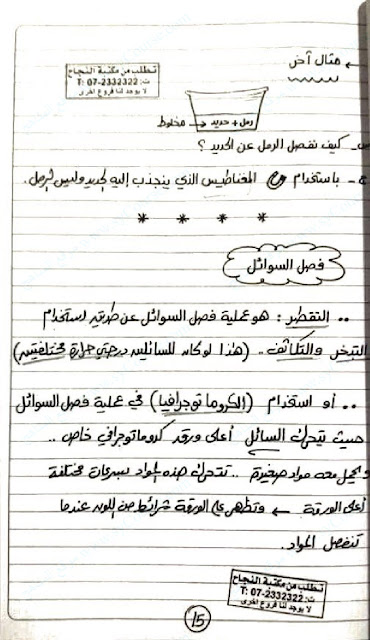 مثال آخر
تطلب من مكتبة النجاح
ت: 07-2332322 :T
لا يوجد لنا فروع اخرى
رمل + حديد → مخلوط
س- كيف نفصل الرمل عن الحديد ؟
ج- باستخدام المغناطيس الذي ينجذب إليه الحديد وليس الرمل.
* * * *
فصل السوائل
.. التقطير : هو عملية فصل السوائل عن طريق استخدام
التبخر والتكاثف .. (هذا لو كان للسائلين درجتي حرارة مختلفتين)
.. أو استخدام (الكروماتوجرافيا) في عملية فصل السوائل
حيث يتحرك السائل أعلى ورقة كروماتوجرافي خاص ..
ويحمل معه مواد صغيرة .. تتحرك هذه المواد بسرعات مختلفة
أعلى الورقة ← وتظهر على الورقة شرائط من اللون عندما
تنفصل المواد.
تطلب من مكتبة النجاح
ت: 07-2332322 :T
لا يوجد لنا فروع اخرى
15